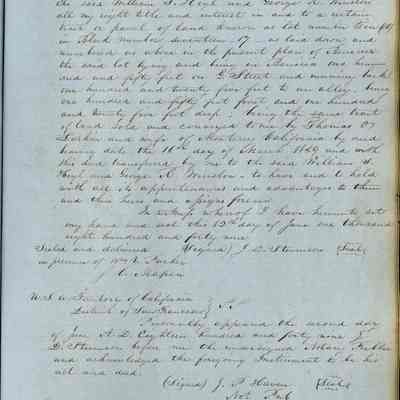 the said William S. Hoyt and George A. Winslow
all my right title and interest in and to a certain
lot or parcel of land known as lot number twenty
in Block number seventeen 17 as laid down and
numbered as above in the present plan of
the said lot lying and being in one hun
dred and fifty feet on G Street and running back
one hundred and twenty five feet to an alley, being
one hundred and fifty feet front and one hundred
and twenty five feet deep. being the same tract
of land sold and conveyed to me by Thomas O.
Larkin and wife of Monterey California by deed
bearing date the 11th day of March 1849 and with
this deed transferred by me to the said William S.
Hoyt and George A. Winslow, to have and to hold
with all its appurtenances and advantages to them
and their heirs and assigns forever.
In witness whereof I have hereunto set
my hand and seal this 12th day of June one thousand
eight hundred and forty nine
Sealed and delivered (Signed) J. D. Stevenson (Seal)
in presence of Wm. Parker
U.S. Territory of California
District of San Francisco
Personally appeared the second day
of June A.D. Eighteen hundred and forty nine J.
D. Stevenson before me the undersigned Notary Public
and acknowledged the foregoing Instrument to be his
act and deed.
(Signed) J. P. Haven (Seal)
Not. Pub.